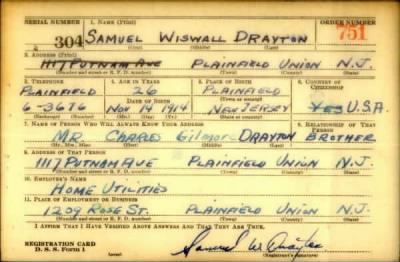 SERIAL NUMBER 1. NAME (Print) ORDER NUMBER
304 SAMUEL WISWALL DRAYTON 751
(First) (Middle) (Last)
2. ADDRESS (Print)
1117 PUTNAM AVE PLAINFIELD UNION N.J.
(Number and street or R. F. D. number) (Town) (County) (State)
3. TELEPHONE 4. AGE IN YEARS 5. PLACE OF BIRTH 6. COUNTRY OF CITIZENSHIP
PLAINFIELD 26 PLAINFIELD
DATE OF BIRTH (Town or county)
6-3676 NOV 14 1914 NEW JERSEY YES U.S.A.
(Exchange) (Number) (Mo.) (Day) (Yr.) (State or country)
7. NAME OF PERSON WHO WILL ALWAYS KNOW YOUR ADDRESS 8. RELATIONSHIP OF THAT PERSON
MR. CHARLES Gilmore DRAYTON BROTHER
(Mr., Mrs., Miss) (First) (Middle) (Last)
9. ADDRESS OF THAT PERSON
1117 PUTNAM AVE PLAINFIELD UNION N.J.
(Number and street or R. F. D. number) (Town) (County) (State)
10. EMPLOYER'S NAME
HOME UTILITIES
11. PLACE OF EMPLOYMENT OR BUSINESS
1209 ROSE ST. PLAINFIELD UNION N.J.
(Number and street or R. F. D. number) (Town) (County) (State)
I AFFIRM THAT I HAVE VERIFIED ABOVE ANSWERS AND THAT THEY ARE TRUE.
REGISTRATION CARD
D. S. S. Form 1 Samuel W. Drayton
(Registrant's signature)